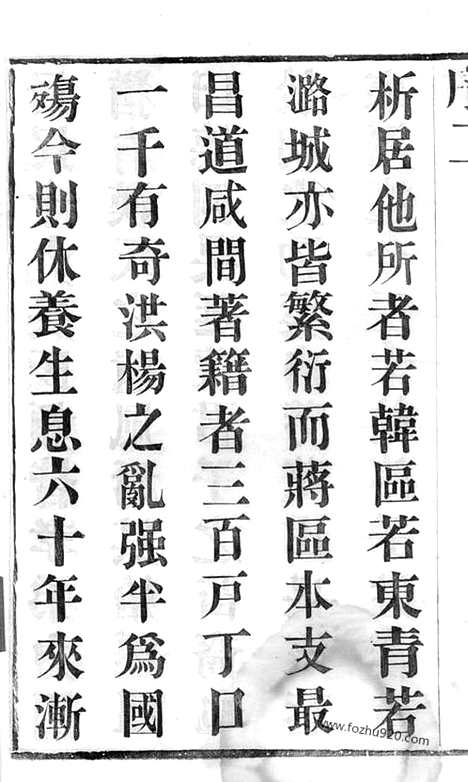 序二
析居他所者若韓區若東青若
潞城亦皆繁衍而蔣區本支最
昌道咸間著籍者三百戶丁口
一千有奇洪楊之亂强半爲國
殤今則休養生息六十年來漸
www.fozhu920.com